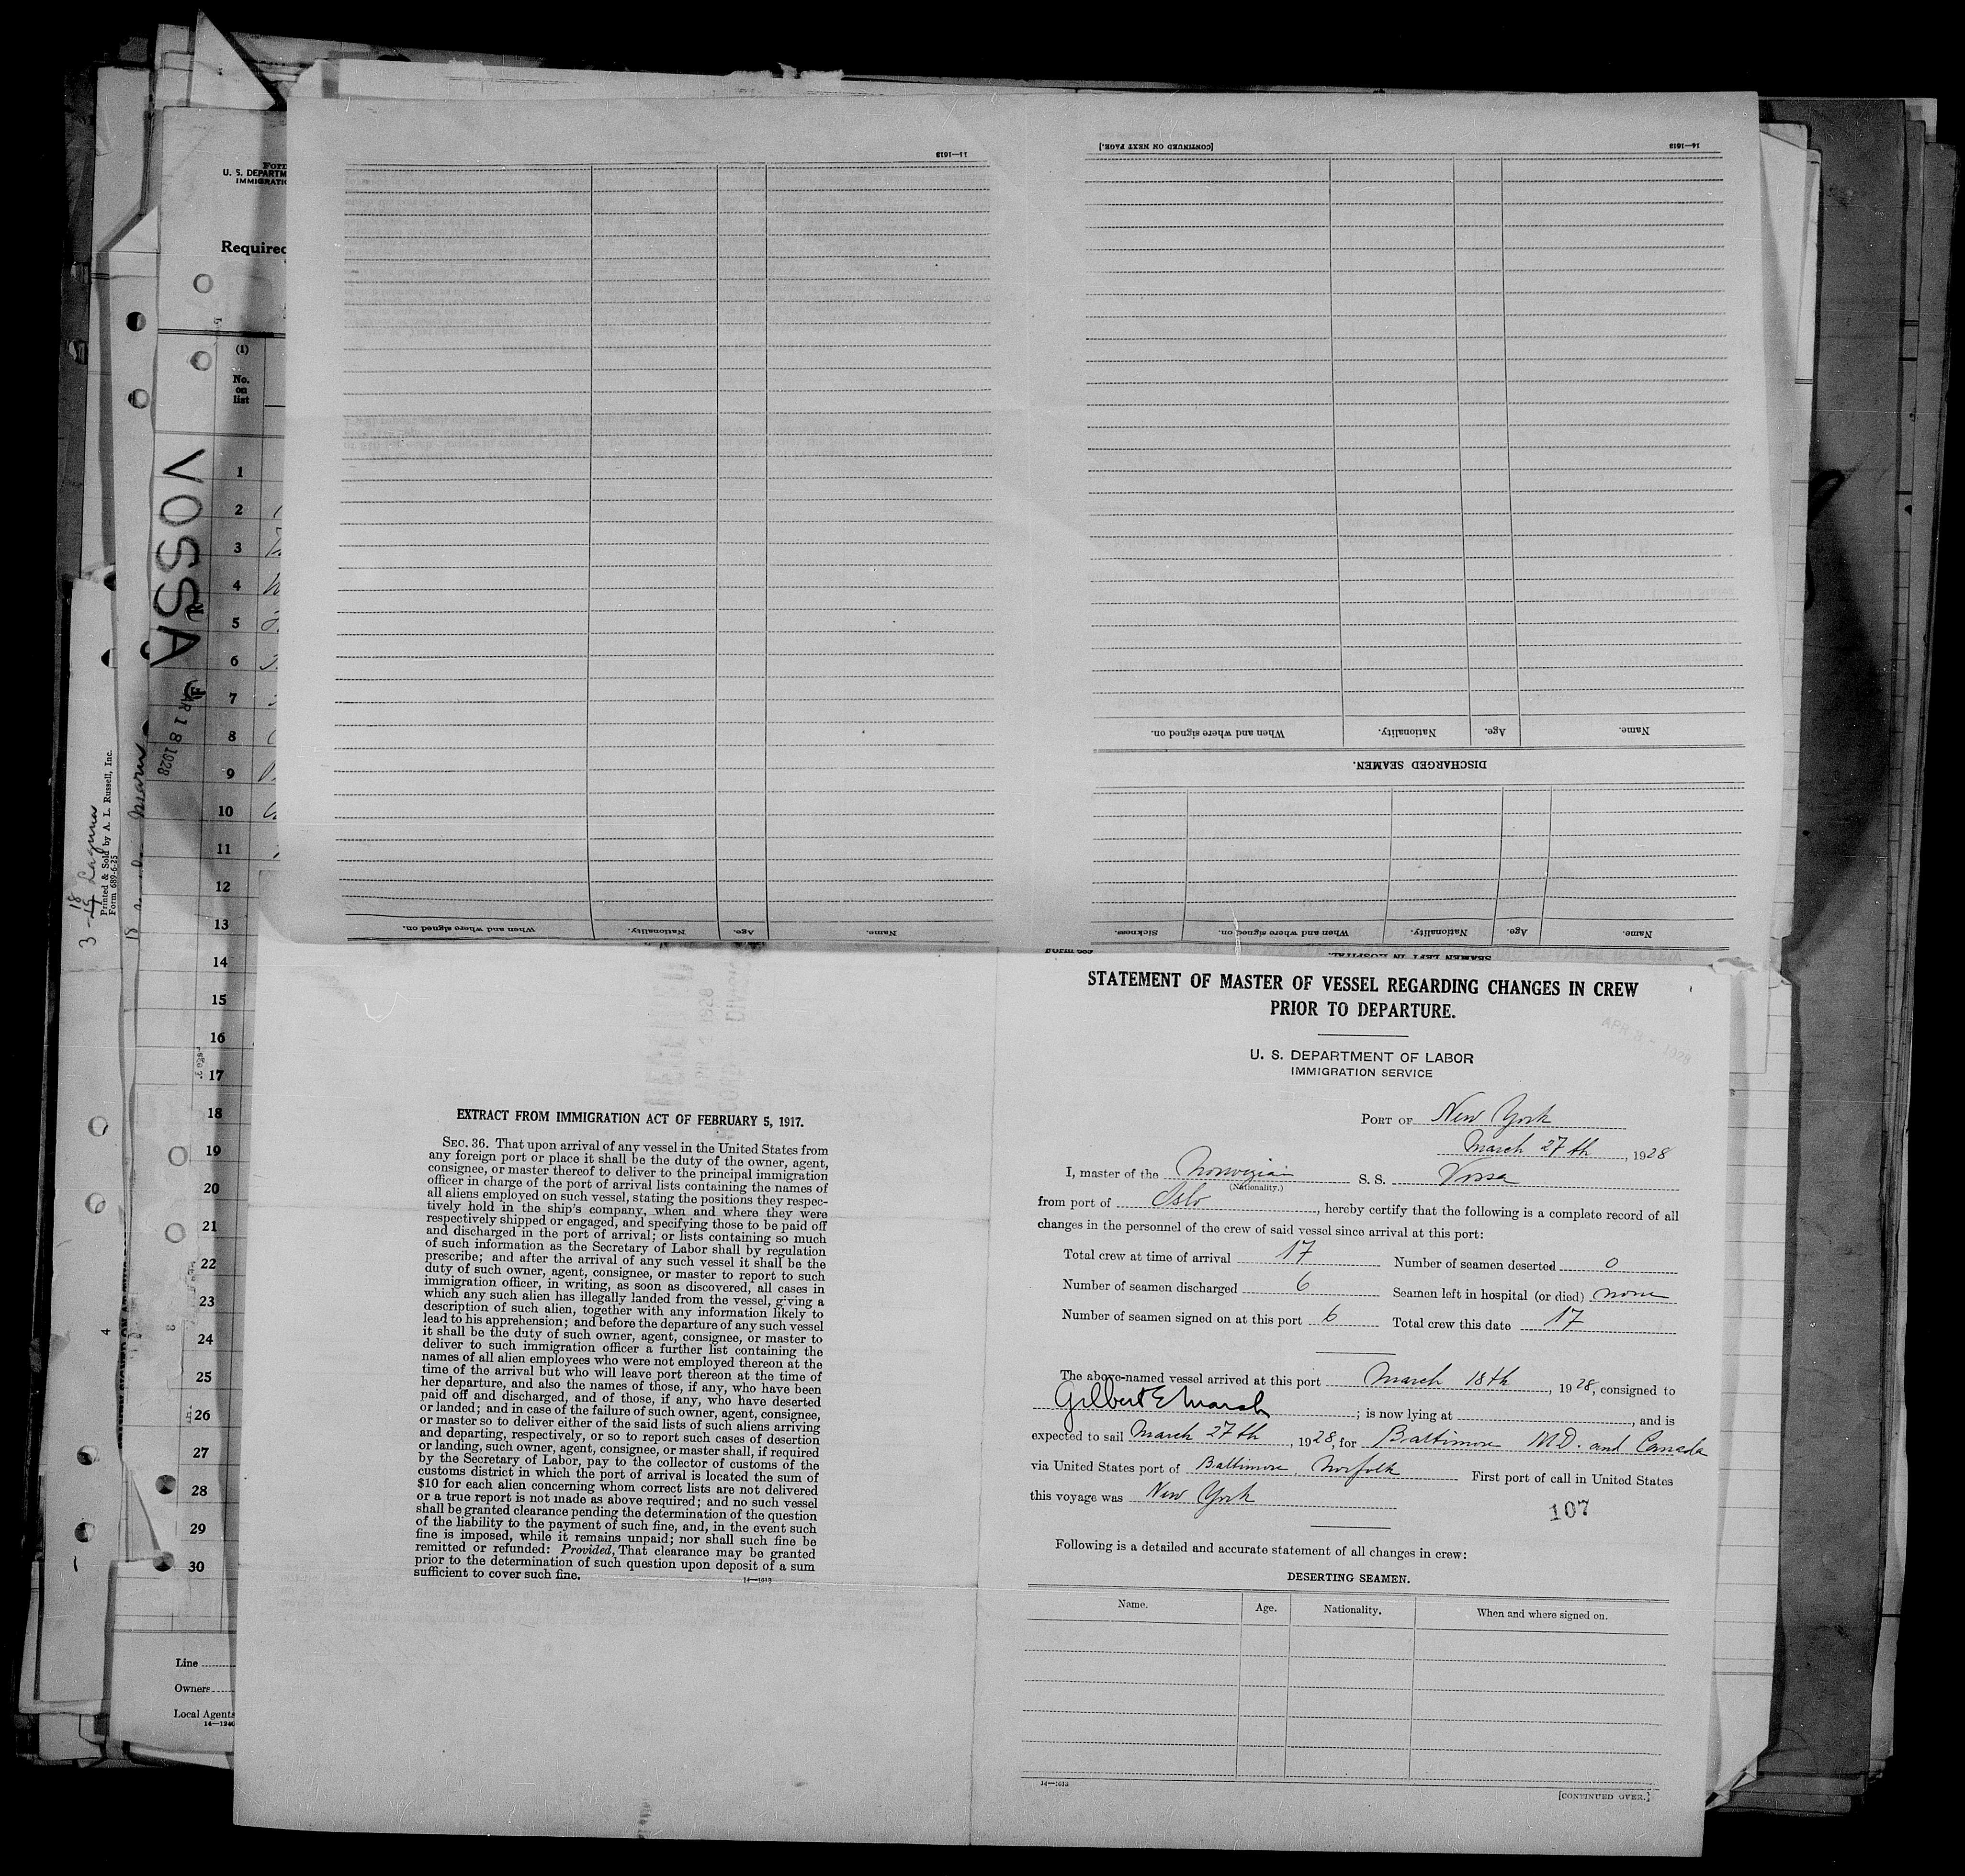 14—1613
[CONTINUED ON NEXT PAGE.]
14—1613
When and where signed on.
Nationality.
Age.
Name.
DISCHARGED SEAMEN.
Sickness.
When and where signed on.
Nationality.
Age.
Name.
SEAMEN LEFT IN HOSPITAL.
When and where signed on.
Nationality.
Age.
Name.
U. S. DEPARTM
IMMIGRATI
Required
(1)
No.
on
list
1
2
3
4
5
6
7
8
9
10
11
12
13
14
15
16
17
18
19
20
21
22
23
24
25
26
27
28
29
30
Line
Owners
Local Agents
14—1240
VOSSA
MAR 18 1928
3-18 Laguna
Printed & Sold by A. L. Russell, Inc.
Form 689-6-25
EXTRACT FROM IMMIGRATION ACT OF FEBRUARY 5, 1917.
SEC. 36. That upon arrival of any vessel in the United States from
any foreign port or place it shall be the duty of the owner, agent,
consignee, or master thereof to deliver to the principal immigration
officer in charge of the port of arrival lists containing the names of
all aliens employed on such vessel, stating the positions they respec-
tively hold in the ship's company, when and where they were
respectively shipped or engaged, and specifying those to be paid off
and discharged in the port of arrival; or lists containing so much
of such information as the Secretary of Labor shall by regulation
prescribe; and after the arrival of any such vessel it shall be the
duty of such owner, agent, consignee, or master to report to such
immigration officer, in writing, as soon as discovered, all cases in
which any such alien has illegally landed from the vessel, giving a
description of such alien, together with any information likely to
lead to his apprehension; and before the departure of any such vessel
it shall be the duty of such owner, agent, consignee, or master to
deliver to such immigration officer a further list containing the
names of all alien employees who were not employed thereon at the
time of the arrival but who will leave port thereon at the time of
her departure, and also the names of those, if any, who have been
paid off and discharged, and of those, if any, who have deserted
or landed; and in case of the failure of such owner, agent, consignee,
or master so to deliver either of the said lists of such aliens arriving
and departing, respectively, or so to report such cases of desertion
or landing, such owner, agent, consignee, or master shall, if required
by the Secretary of Labor, pay to the collector of customs of the
customs district in which the port of arrival is located the sum of
$10 for each alien concerning whom correct lists are not delivered
or a true report is not made as above required; and no such vessel
shall be granted clearance pending the determination of the question
of the liability to the payment of such fine, and, in the event such
fine is imposed, while it remains unpaid; nor shall such fine be
remitted or refunded: Provided, That clearance may be granted
prior to the determination of such question upon deposit of a sum
sufficient to cover such fine.
14—1613
STATEMENT OF MASTER OF VESSEL REGARDING CHANGES IN CREW
PRIOR TO DEPARTURE.
APR 3 - 1928
U. S. DEPARTMENT OF LABOR
IMMIGRATION SERVICE
PORT OF New York
March 27th, 1928
I, master of the Norwegian S. S. Vossa
(Nationality.)
from port of Oslo, hereby certify that the following is a complete record of all
changes in the personnel of the crew of said vessel since arrival at this port:
Total crew at time of arrival 17 Number of seamen deserted 0
Number of seamen discharged 6 Seamen left in hospital (or died) none
Number of seamen signed on at this port 6 Total crew this date 17
The above-named vessel arrived at this port March 18th, 1928, consigned to
Gilbert E Marsh; is now lying at , and is
expected to sail March 27th, 1928, for Baltimore MD. and Canada
via United States port of Baltimore, Norfolk First port of call in United States
this voyage was New York
107
Following is a detailed and accurate statement of all changes in crew:
DESERTING SEAMEN.
Name. Age. Nationality. When and where signed on.
14—1613
[CONTINUED OVER.]